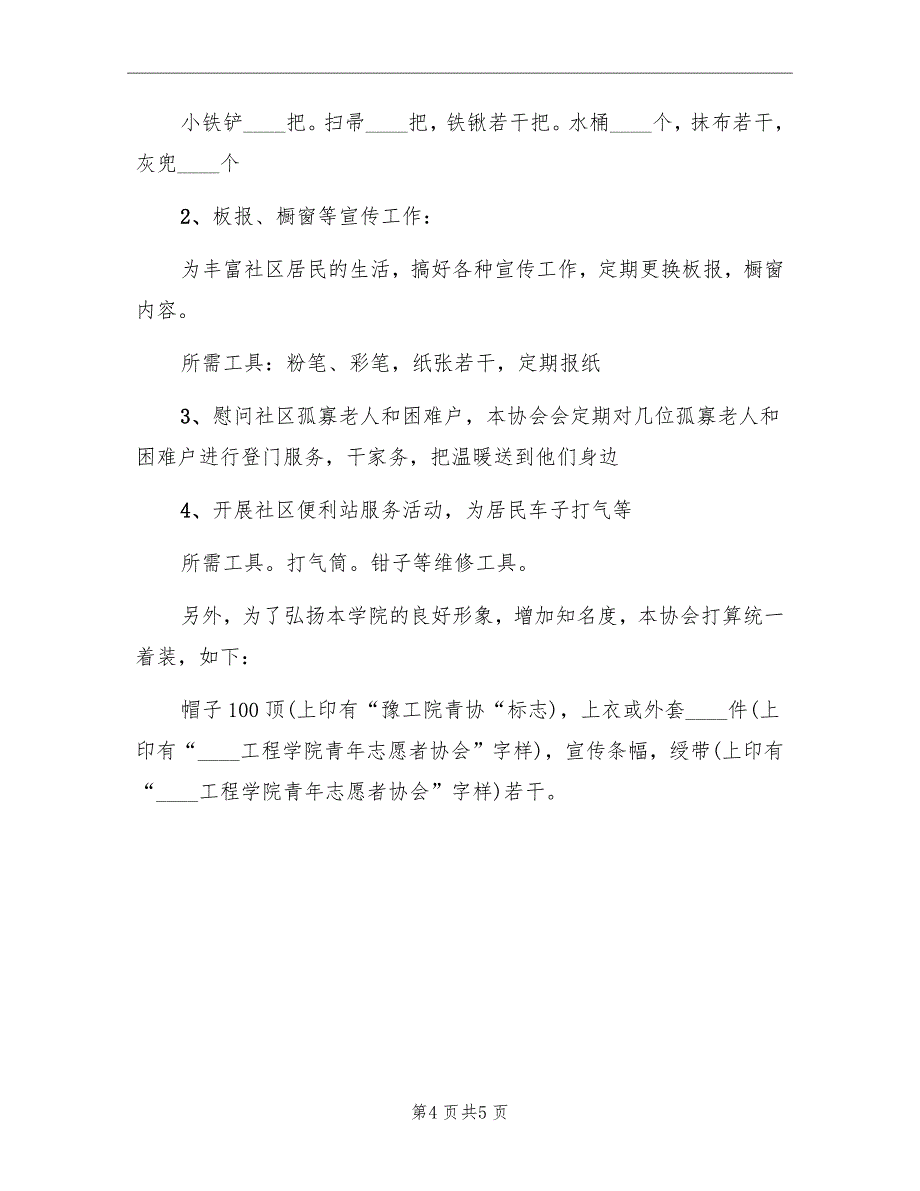 小铁铲____把。扫帚____把，铁锹若干把。水桶____个，抹布若干，
灰兜____个
2、板报、橱窗等宣传工作：
为丰富社区居民的生活，搞好各种宣传工作，定期更换板报，橱窗
内容。
所需工具：粉笔、彩笔，纸张若干，定期报纸
3、慰问社区孤寡老人和困难户，本协会会定期对几位孤寡老人和
困难户进行登门服务，干家务，把温暖送到他们身边
4、开展社区便利站服务活动，为居民车子打气等
所需工具。打气筒。钳子等维修工具。
另外，为了弘扬本学院的良好形象，增加知名度，本协会打算统一
着装，如下：
帽子 100 顶(上印有“豫工院青协“标志)，上衣或外套____件(上
印有“____工程学院青年志愿者协会”字样)，宣传条幅，绶带(上印有
“____工程学院青年志愿者协会”字样)若干。
第4 页共5 页